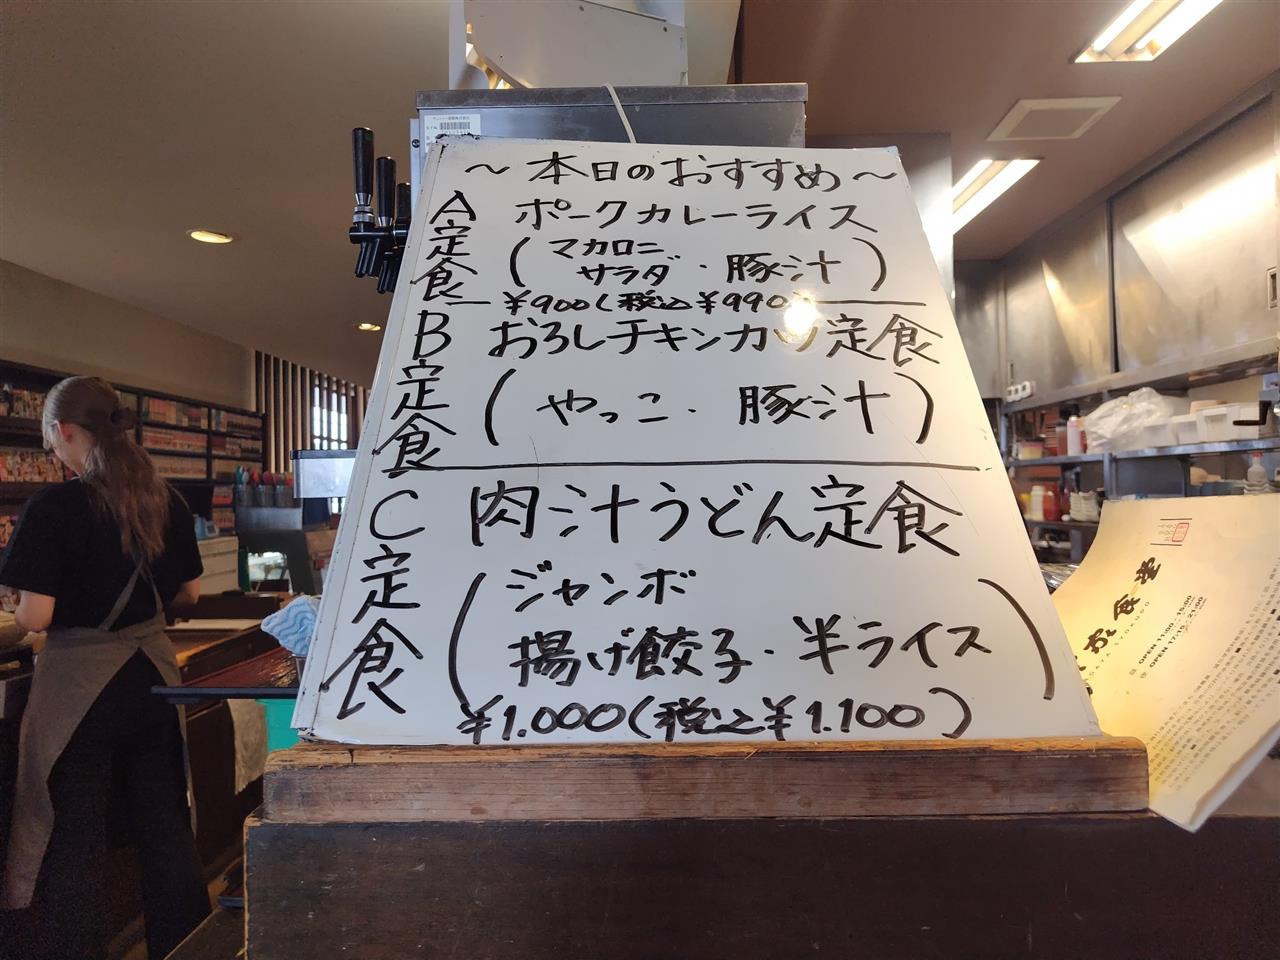 ～本日のおすすめ～
A定食
ポークカレーライス
(マカロニ
サラダ・豚汁)
¥900(税込¥990)
B定食
おろしチキンカツ定食
(やっこ・豚汁)
C定食
肉汁うどん定食
(ジャンボ
揚げ餃子・半ライス)
¥1.000(税込¥1.100)
食堂
OPEN 11:00-15:00
OPEN 17:15-21:00